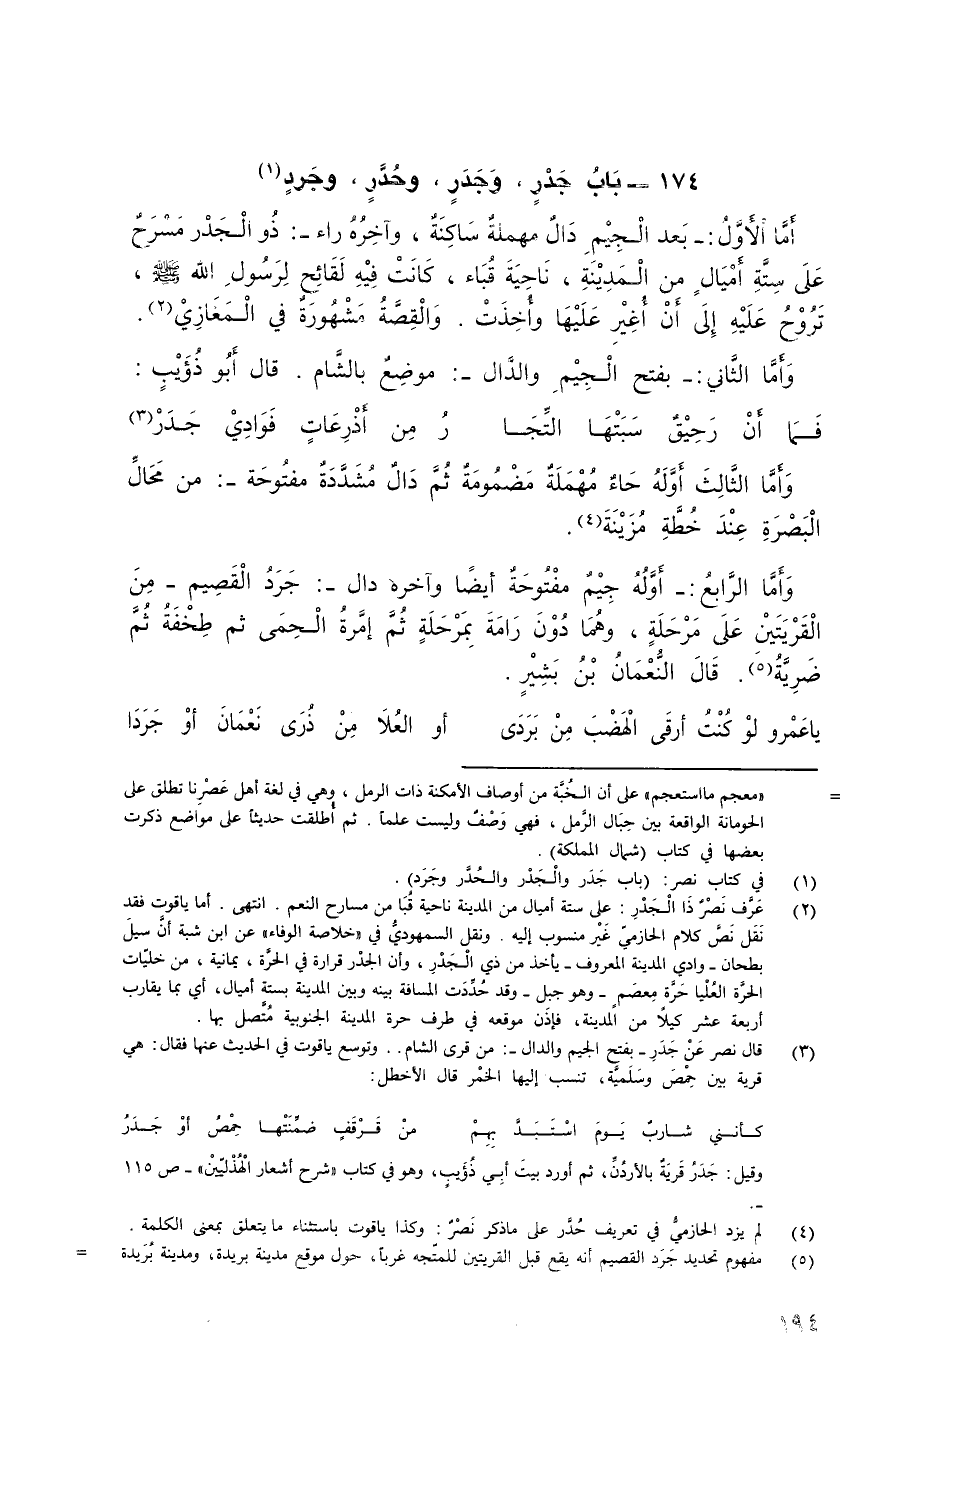 ١٧٤ — بَابُ جَدْرٍ ، وَجَدَرٍ ، وحُدَّرٍ ، وجَردٍ(١)
أَمَّا ٱلأَوَّلُ :ـ بَعد الْـجِيْمِ دَالٌ مهملةٌ سَاكِنَةٌ ، وآخِرُهُ راء ـ: ذُو الْـجَدْر مَسْرَحٌ
عَلَى سِتَّةِ أَمْيَالٍ من الْـمَدِيْنَةِ ، نَاحِيَةَ قُبَاء ، كَانَتْ فِيْهِ لَقَائِح لِرَسُولِ الله ﷺ ،
تَرُوْحُ عَلَيْهِ إِلَى أَنْ أُغِيْرَ عَلَيْهَا وأُخِذَتْ . وَالْقِصَّةُ مَشْهُورَةٌ في الْـمَغَازِيْ(٢).
وَأَمَّا الثَّاني :ـ بفتح الْـجِيْمِ والدَّال ـ: موضِعٌ بالشَّام . قال أَبُو ذُؤَيْبٍ :
فَــمَا أَنْ رَحِيْقٌ سَبَتْهَـا التِّجَـا رُ مِن أَذْرِعَاتٍ فَوَادِيْ جَـدَرْ(٣)
وَأَمَّا الثَّالِثَ أَوَّلَهُ حَاءُ مُهْمَلَةٌ مَضْمُومَةٌ ثُمَّ دَالٌ مُشَدَّدَةٌ مفتُوحَة ـ: من مَحَالِّ
الْبَصْرَةِ عِنْدَ خُطَّةِ مُزَيْنَةَ(٤).
وَأَمَّا الرَّابعُ :ـ أَوَّلُهُ جِيْمٌ مفْتُوحَةٌ أيضًا وآخره دال ـ: جَرَدُ الْقَصِيم ـ مِنَ
الْقَرْيَتَيْنْ عَلَى مَرْحَلَةٍ ، وهُمَا دُوْنَ رَامَةَ بِمَرْحَلَةٍ ثُمَّ إِمَّرةُ الْـحِمَى ثم طِخْفَةُ ثُمَّ
ضَرِيَّةُ(٥). قَالَ النُّعْمَانُ بْنُ بَشِيْرٍ .
ياعَمْرو لوْ كُنْتُ أرقَى الْهَضْبَ مِنْ بَرَدَى أو العُلَا مِنْ ذُرَى نَعْمَانَ أوْ جَرَدَا
= «معجم مااستعجم» على أن الخُبَّة من أوصاف الأمكنة ذات الرمل ، وهي في لغة أهل عَصْرِنا تطلق على
الحومانة الواقعة بين حِبَال الرَّمل ، فهي وَصْفٌ وليست علماً . ثم أطلقت حديثاً على مواضع ذكرت
بعضها في كتاب (شمال المملكة) .
(١) في كتاب نصر: (باب جَدَر والْـجَدْر والـحُدَّر وجَرَد) .
(٢) عَرَّف نَصْرٌ ذَا الْـجَدْرِ : على ستة أميال من المدينة ناحية قُبَا من مسارح النعم . انتهى . أما ياقوت فقد
نَقَل نَصَّ كلام الحازميّ غَيْر منسوب إليه . ونقل السمهوديُّ في «خلاصة الوفاء» عن ابن شبة أنَّ سيلَ
بطحان ـ وادي المدينة المعروف ـ يأخذ من ذي الْـجَدْرِ ، وأن الجَدْر قرارة في الحرَّة ، يمانية ، من حليات
الحرَّة العُلْيا حَرَّة مِعصَمٍ ـ وهو جبل ـ وقد حُدِّدَت المسافة بينه وبين المدينة بستة أميال، أي بما يقارب
أربعة عشر كيلًا من المدينة، فإذن موقعه في طرف حرة المدينة الجنوبية مُتَّصل بها .
(٣) قال نصر عَنْ جَدَرِ ـ بفتح الجيم والدال ـ: من قرى الشام. . وتوسع ياقوت في الحديث عنها فقال : هي
قرية بين حِمْصَ وسَلَميَّة، تنسب إليها الخَمْر قال الأخطل:
كـأنـني شـاربٌ يَـومَ اسْتَـبَـدَّ بِهِـمْ منْ قَـرْقَفٍ ضمِّنَتْهـا حِمْصُ أوْ جَـدَرُ
وقيل : جَدَرُ قَريَةٌ بالأردُنِّ، ثم أورد بيتَ أبـي ذُؤَيبٍ، وهو في كتاب «شرح أشعار الْهُذَليّينْ» ـ ص ١١٥
ـ.
(٤) لم يزد الحازميُّ في تعريف حُدَّر على ماذكر نَصْرٌ : وكذا ياقوت باستثناء مايتعلق بمعنى الكلمة .
(٥) مفهوم تحديد جَرَد القصيم أنه يقع قبل القريتين للمتّجه غرباً، حول موقع مدينة بريدة، ومدينة بُرَيدة =
١٩٤